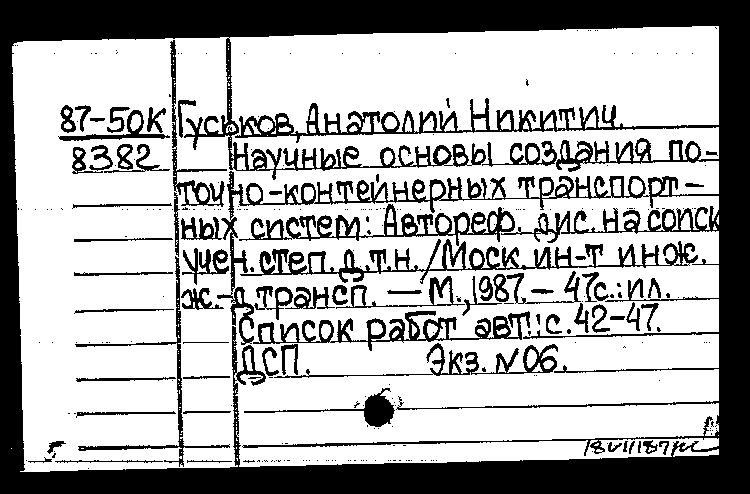 87-50К Гуськов, Анатолий Никитич.
8382 Научные основы создания по-
точно-контейнерных транспорт-
ных систем: Автореф. дис. на соиск
учен. степ. д.т.н. /Моск. ин-т инж.
ж.-д. трансп. — М., 1987. — 47с.: ил.
Список работ авт.: с. 42-47.
ДСП. Экз. №06.